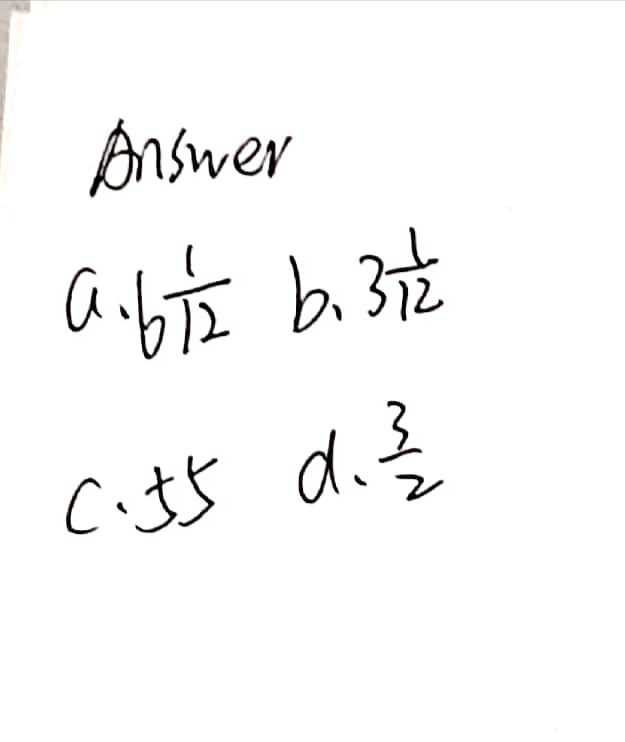 Answer
a. 6 1/12 b. 3 1/12
c. 55 d. 3/2